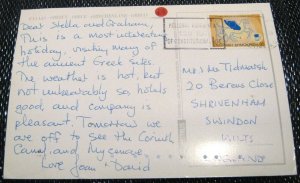 Dear Stella and Graham,
This is a most interesting
holiday, visiting many of
the ancient Greek sites.
The weather is hot, but
not unbearably so, hotels
good and company is
pleasant. Tomorrow we
are off to see the Corinth
Canal and Mycenae.
Love Joan + David
Mr & Mrs Titmarsh
20 Berens Close
SHRIVENHAM
SWINDON
WILTS